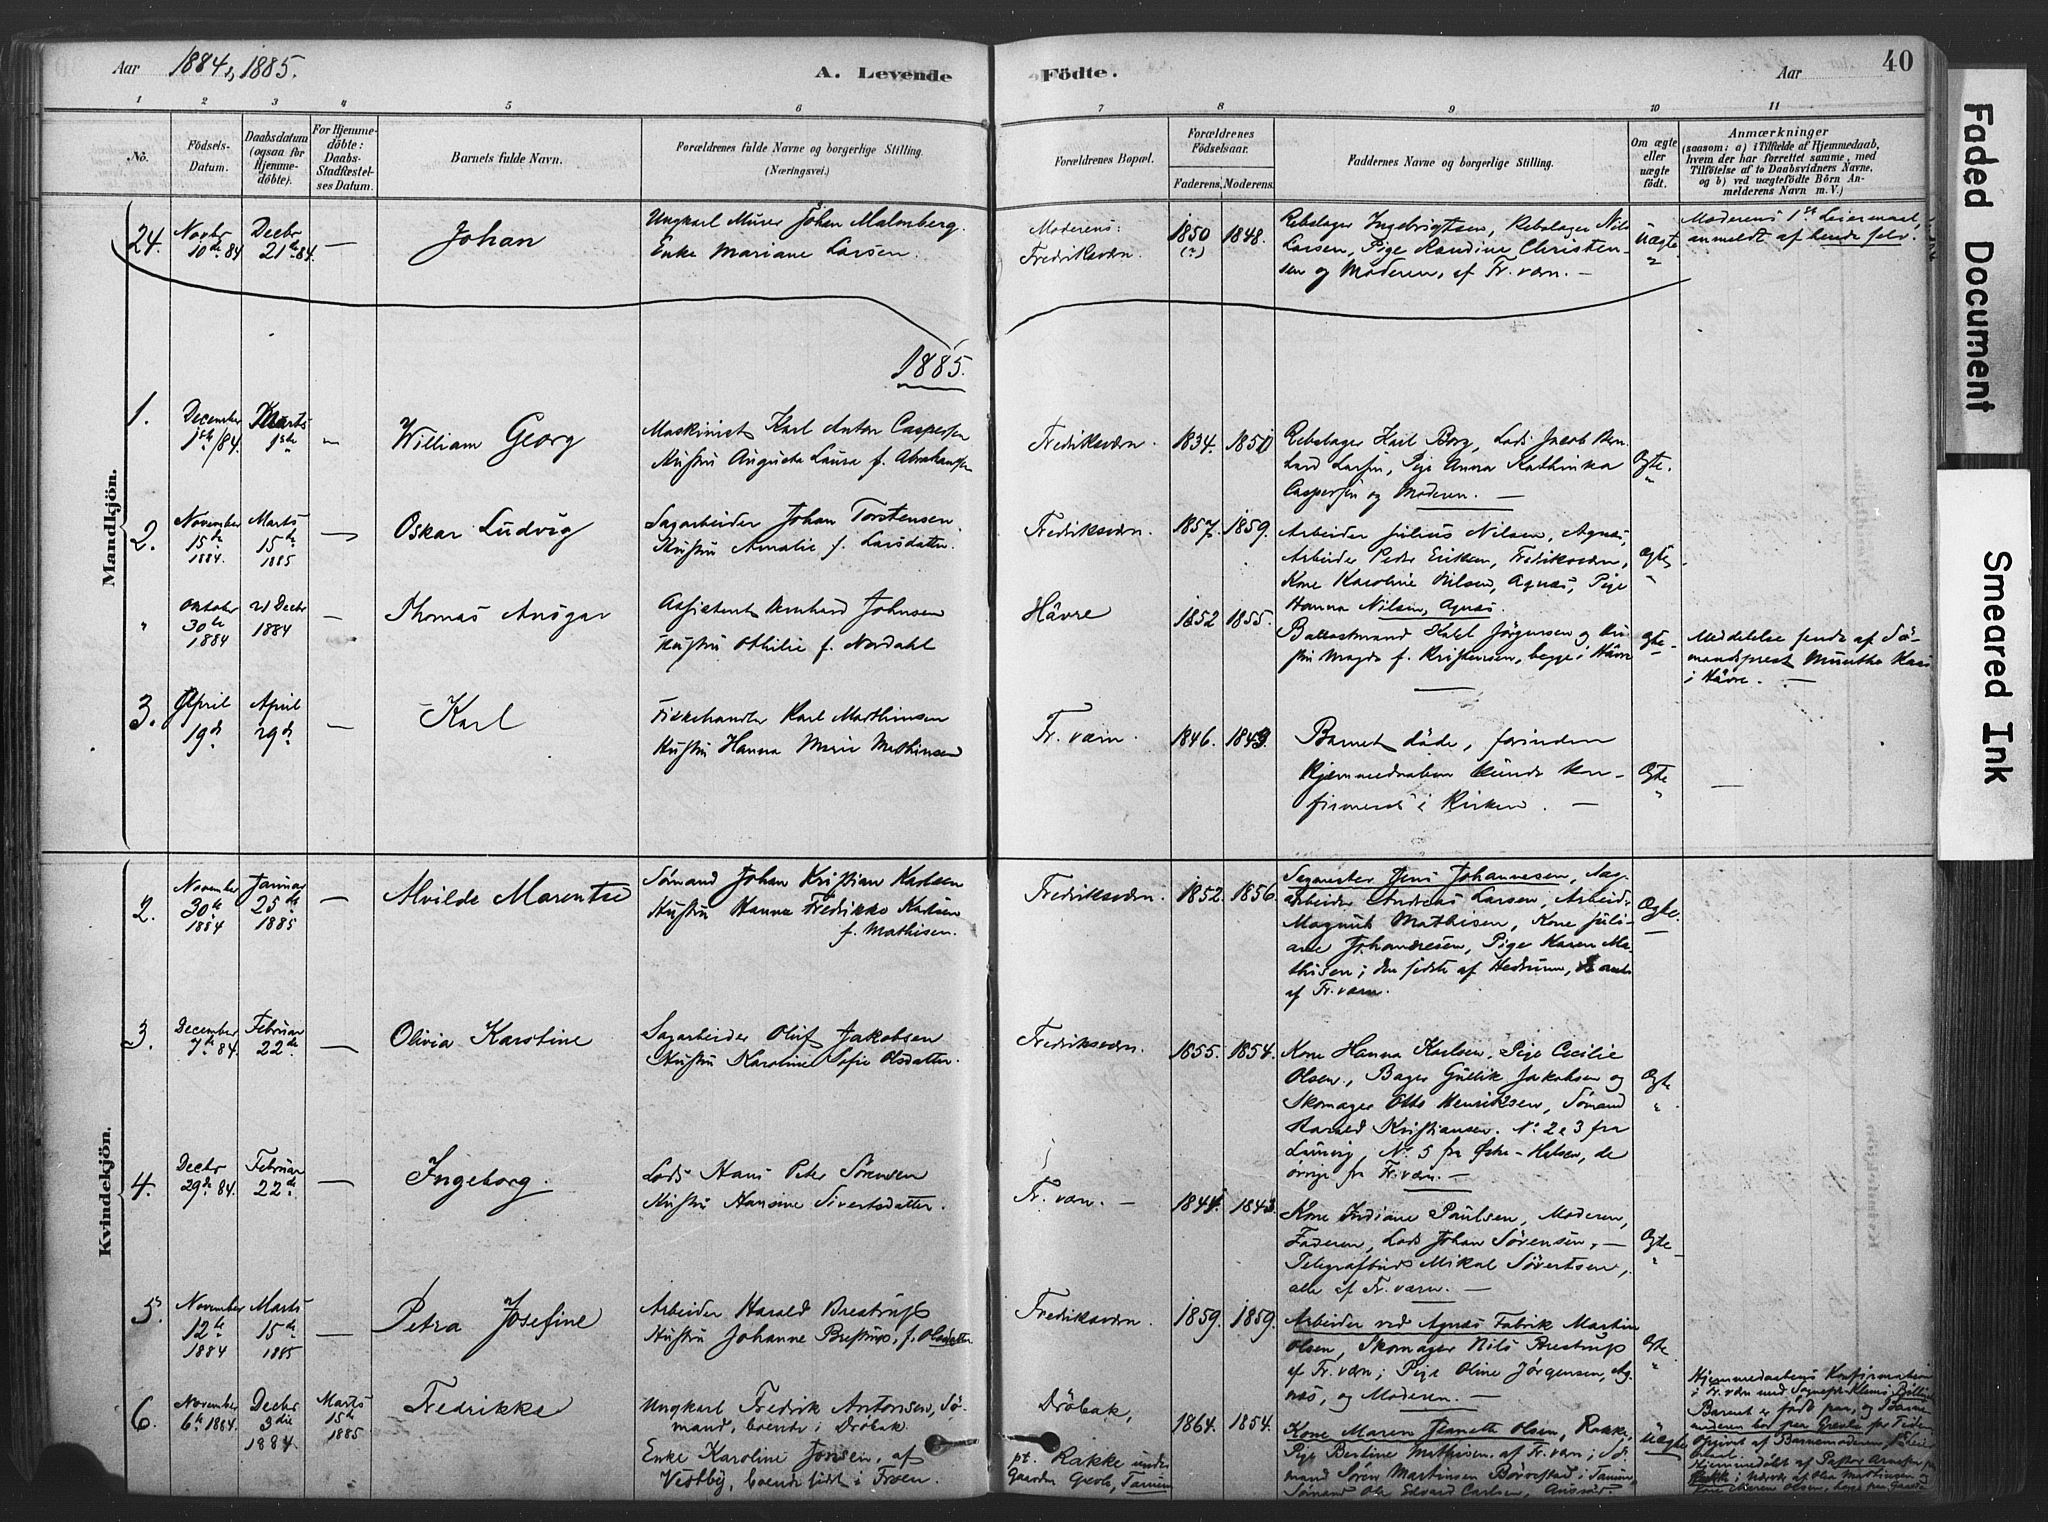 Aar 1884, 1885.
A. Levende Födte.
Aar
40
1 2 3 4 5 6 7 8 9 10 11
No.
Födsels-
Datum.
Daabsdatum
(ogsaa for
Hjemme-
döbte).
For Hjemme-
döbte:
Daabs-
Stadfæstel-
ses Datum.
Barnets fulde Navn.
Forældrenes fulde Navne og borgerlige Stilling.
(Næringsvei.)
Forældrenes Bopæl.
Forældrenes
Födselsaar.
Faderens. Moderens.
Faddernes Navne og borgerlige Stilling.
Om ægte
eller
uægte
födt.
Anmærkninger
(saasom: a) i Tilfælde af Hjemmedaab,
hvem der har forrettet samme, med
Tilföielse af to Daabsvidners Navne,
og b) ved uægtefödte Börn An-
melderens Navn m. V.)
Mandkjön.
24.
Novbr
10de 84
Decbr
21de 84.
—
Johan
Ungkarl Murer Johan Malmberg.
Enke Mariane Larsen.
Moderens:
Fredriksværn.
1850
(?)
1848.
Rebslager Ingebrigtsen, Rebslager Nils
Larsen, Pige Randine Christen-
sen og Moderen, af Fr. værn. —
Uægte
Moderens 1ste Leiermaal,
anmeldt af hende selv.
1885.
1.
December
1ste/84.
Marts
1ste
William Georg
Maskinist Karl Anton Caspersen
Hustru Augusta Laura f. Abrahamsen
Fredriksværn.
1834. 1850
Rebslager Karl Borg, Lods Jacob Bern-
hard Larsen, Pige Anna Kathinka
Caspersen og Moderen. —
Ægte.
2.
November
15de
1884.
Marts
15de
1885
—
Oskar Ludvig
Sagarbeider Johan Torstensen.
Hustru Amalie f. Larsdatter.
Fredriksværn.
1857. 1859.
Arbeider Julius Nilsen, Agnæs,
Arbeider Peder Eriksen, Fredriksværn,
Kone Karoline Nilsen, Agnæs, Pige
Hanna Nilsen, Agnæs.
Ægte
"
Oktober
30te
1884
Decbr
1884
—
Thomas Ansgar
Assistent Bernhard Johnsen
Hustru Othilie f. Nordahl
Hâvre
1852 1855.
Ballastmand Jørgensen og Hu-
stru Magda f. Kristensen, begge i Hâvre
Ægte
Meddelelse sendt af Sø-
mandsprest Munthe Kaas
i Hâvre. —
3.
April
19de
April
29de
—
Karl
Fiskehandler Karl Marthinsen
Hustru Hanna Marie Mathinsen
Fr. værn.
1846. 1843.
Barnet døde, forinden
Hjemmedaaben kunde kon-
firmeres i Kirken. —
Ægte
—
Kvindekjön.
2.
November
30te
1884
Januar
25de
1885
—
Alvilde Marentse
Sømand Johan Kristian Karlsen
Hustru Hanna Fredrikke Karlsen
f. Mathisen.
Fredriksværn.
1852. 1856.
Sagmester Jens Johannesen, Sag-
arbeider Andreas Larsen, Arbeider
Magnus Mathisen, Kone Juli-
ane Johannesen, Pige Karen Ma-
thisen; den sidste af Hedrum, de andre
af Fr. værn.
Ægte.
3.
December
7de 84.
Februar
22de
—
Olivia Karstine
Sagarbeider Oluf Jakobsen
Hustru Karoline Sofie Olsdatter.
Fredriksværn.
1855. 1854.
Kone Hanna Karlsen, Pige Cecilie
Olsen, Bager Gullik Jakobsen og
Skomager Otto Henriksen, Sømand
Harald Kristiansen. No 2 & 3 fra
Laurvig, No 5 fra Østre-Halsen, de
øvrige fra Fr. værn. —
Ægte
4.
Decbr
29de 84.
Februar
22de
—
Ingeborg.
Lods Hans Peter Sørensen
Hustru Hansine Sivertsdatter.
Fr. værn. —
1844. 1843.
Kone Indiane Paulsen, Moderen,
Faderen, Lods Johan Sørensen, —
Telegrafbud Mikal Søvertsen,
alle af Fr. værn. —
Ægte
5.
November
12te
1884
Marts
15de
1885
—
Petra Josefine
Arbeider Harald Brestrup
Hustru Johanne Brestrup, f. Olsdatter
Fredriksværn.
1859. 1859.
Arbeider ved Agnæs Fabrik Martin
Olsen, Skomager Nils Brestrup
af Fr. værn; Pige Oline Jørgensen, Ag-
næs, og Moderen. —
Ægte
6.
November
6te 1884.
Decbr
3die
1884.
Marts
15de
1885
Fredrikke
Ungkarl Fredrik Antonsen, Sø-
mand, boende i Drøbak
Enke Karoline Jonsen, af
Vestby, boende sidst i Froen.
Drøbak,
pt. Rakke under
Gaarden Grevle, Tanum
1864. 1854.
Kone Maren Jeanette Olsen, Rakke,
Pige Bertine Mathisen af Fr. værn; Sø-
mand Søren Martinsen Børvestad i Tanum
Sømand Ole Edvard Carlsen,
Uægte
Hjemmedaabens Konfirmation
i Fr. værn med Sogneprest
Barnet er født paa, og Barne-
moderen bor paa Grevle
Opgivet af Barnemoderen
Hjemmedøbt af Pastor
af Ole Mathisen og
Kone Maren Olsen, begge paa Gaarden
Faded Document
Smeared Ink